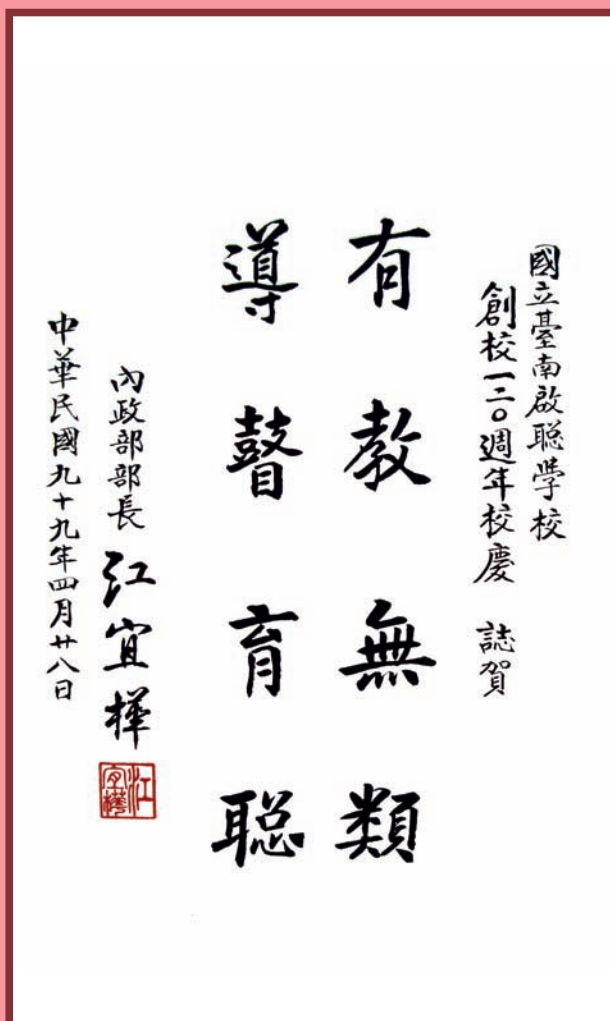 國立臺南啟聰學校
創校一二〇週年校慶 誌賀
有教無類
導瞽育聰
內政部部長 江宜樺
中華民國九十九年四月廿八日
江宜樺